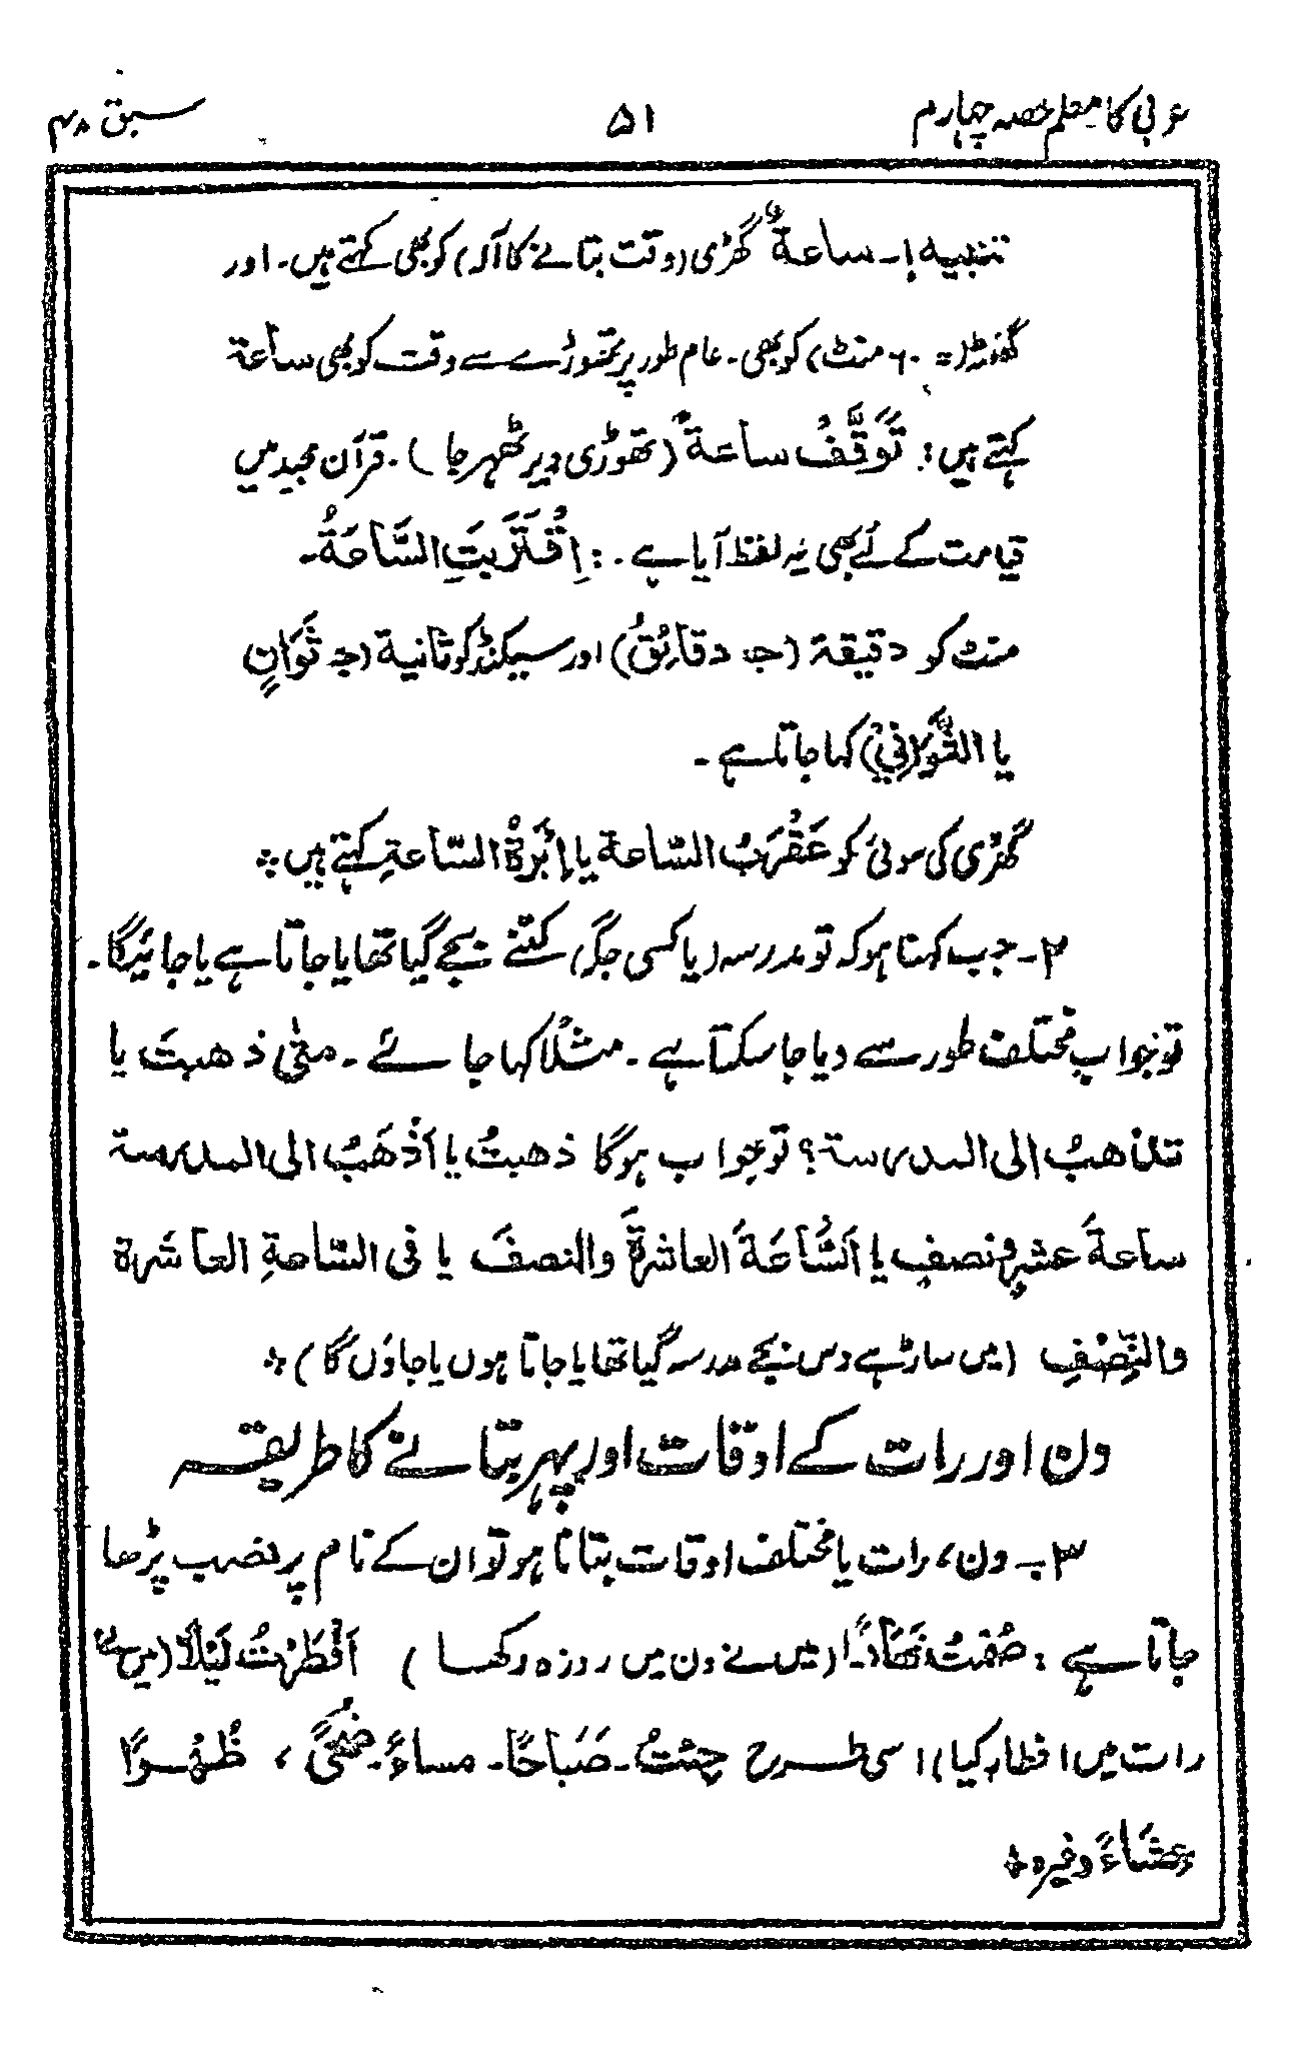 عربی کا معلم حصہ چہارم ۵۱ سبق ۴۸
تنبیہ ۱۔ ساعةٌ گھڑی (وقت بتانے کا آلہ) کو بھی کہتے ہیں۔ اور
گھنٹہ (= ۶۰ منٹ) کو بھی۔ عام طور پر تھوڑے سے وقت کو بھی ساعة
کہتے ہیں: تَوَقَّفْ ساعَةً (تھوڑی دیر ٹھہر جا)۔ قرآن مجید میں
قیامت کے لئے بھی یہ لفظ آیا ہے۔: اِقْتَرَبَتِ السَّاعَةُ۔
منٹ کو دقیقة (جـ دقائِقُ) اور سیکنڈ کو ثانیة (جـ ثَوَانٍ
یا الثَّوَانِي) کہا جاتا ہے۔
گھڑی کی سوئی کو عَقْرَبُ السّاعة یا إبْرَةُ السّاعةِ کہتے ہیں ؞
۲۔ جب کہنا ہو کہ تو مدرسہ (یا کسی جگہ) کتنے بجے گیا تھا یا جاتا ہے یا جائیگا۔
تو جواب مختلف طور سے دیا جا سکتا ہے۔ مثلًا کہا جائے۔ متیٰ ذهبتَ یا
تذهبُ الی المدرسة؟ تو جواب ہوگا ذهبتُ یا اَذْهَبُ الی المدرسة
ساعةَ عشرٍ ونصفٍ یا اَلسَّاعَةَ العاشرةَ والنصفَ یا فی السّاعةِ العاشرة
والنِّصْفِ (میں ساڑھے دس بجے مدرسہ گیا تھا یا جاتا ہوں یا جاؤں گا) ؞
دن اور رات کے اوقات اور پہر بتانے کا طریقہ
۳۔ دن، رات یا مختلف اوقات بتانا ہو تو ان کے نام پر نصب پڑھا
جاتا ہے: صُمْتُ نَهَارًا (میں نے دن میں روزہ رکھا) اَفْطَرْتُ لَيْلًا (میں نے
رات میں افطار کیا) اسی طرح جِئتُ۔ صَبَاحًا۔ مساءً۔ ضُحًی، ظُهْرًا
عِشَاءً وغیرہ ؞